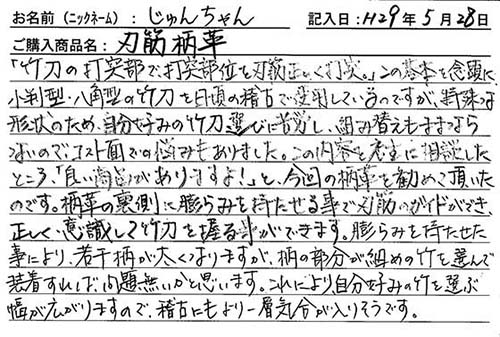 お名前(ニックネーム):じゅんちゃん 記入日:H29年5月28日
ご購入商品名:刃筋柄革
「竹刀の打突部で打突部位を刃筋正しく打突。」この基本を念頭に、
小判型・八角型の竹刀を日頃の稽古で使用しているのですが、特殊な
形状のため、自分好みの竹刀選びに苦労し、組み替えもままなら
ないので、コスト面での悩みもありました。この内容を先生に相談した
ところ、「良い商品がありますよ!」と、今回の柄革を勧めて頂いた
のです。柄革の裏側に膨らみを持たせる事で刃筋のガイドができ、
正しく、意識して竹刀を握る事ができます。膨らみを持たせた
事により、若干柄が太くなりますが、柄の部分が細めの竹を選んで
装着すれば、問題無いかと思います。これにより自分好みの竹を選ぶ
幅が広がりますので、稽古にもより一層気合が入りそうです。